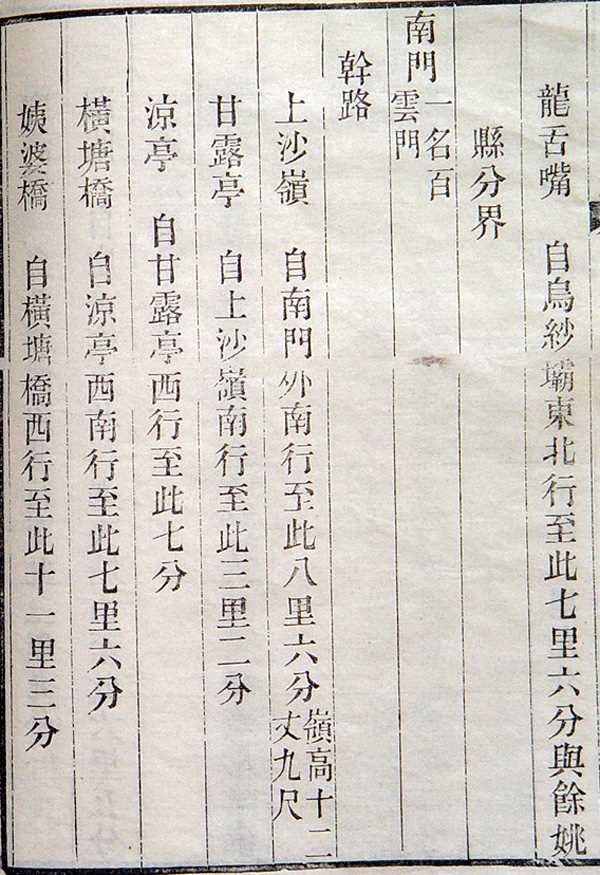 龍舌嘴　自烏紗壩東北行至此七里六分與餘姚
縣分界
南門一名百雲門
幹路
上沙嶺　自南門外南行至此八里六分嶺高十二丈九尺
甘露亭　自上沙嶺南行至此三里二分
涼亭　自甘露亭西行至此七分
橫塘橋　自涼亭西南行至此七里六分
姨婆橋　自橫塘橋西行至此十一里三分